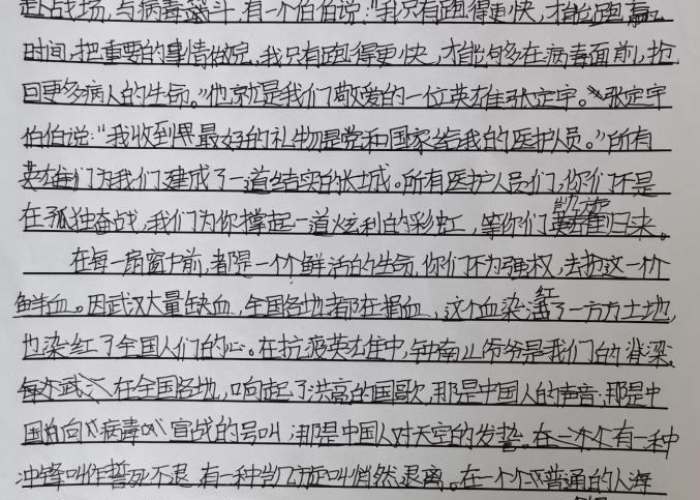 赴战场,与病毒战斗,有一个伯伯说:"我只有跑得更快,才能跑赢
时间,把重要的事情做完,我只有跑得更快,才能够多在病毒面前,抢
回更多病人的生命。"他就是我们敬爱的一位英雄张定宇。张定宇
伯伯说:"我收到界最好的礼物是党和国家给我的医护人员。"所有
英雄们为我们建成了一道结实的长城。所有医护人员们,你们不是
在孤独奋战,我们为你撑起一道炫利的彩虹,等你们凯旋归来。
在每一扇窗户前,都是一个鲜活的生命,你们不为强权,去护这一个
鲜血。因武汉大量缺血,全国各地都在捐血,这个血染红了一方方土地,
也染红了全国人们的心。在抗疫英雄中,钟南山爷爷是我们的脊梁,
每个武汉在全国各地,响起了洪亮的国歌,那是中国人的声音;那是中
国向"病毒"宣战的号叫;那是中国人对天空的发誓。在一次个有一种
冲锋叫作誓死不退,有一种凯旋叫悄然退离。在一个个平普通的人海